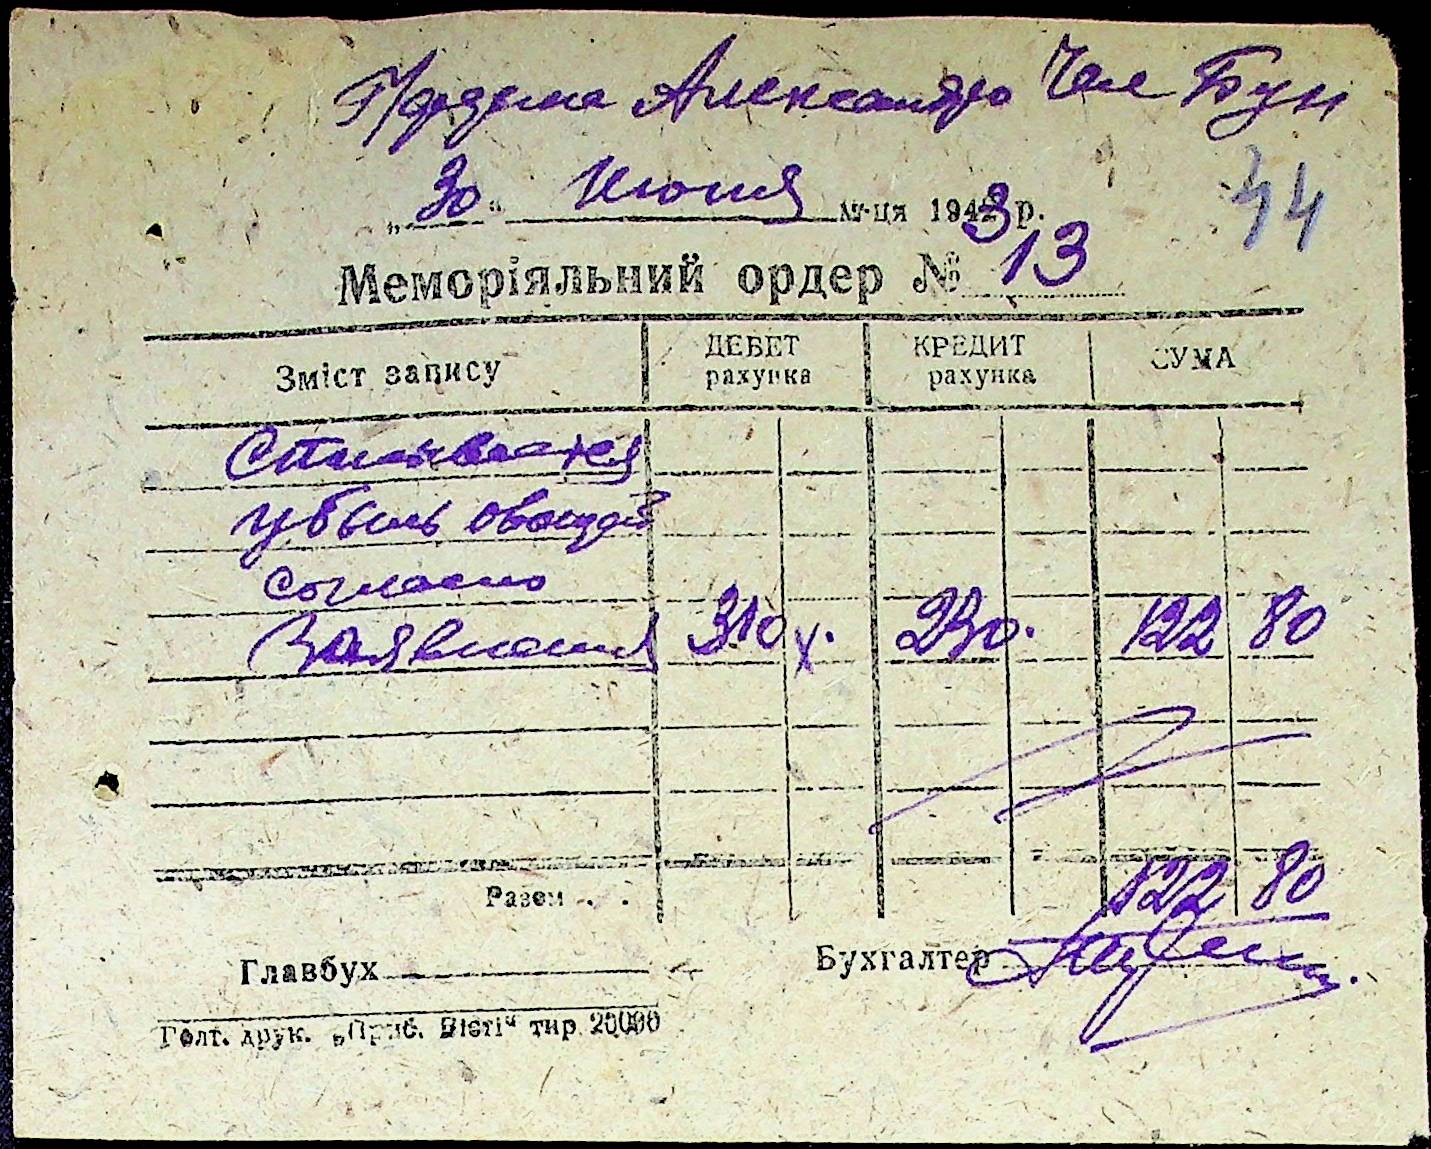 Александро
„30“ Июня м-ця 1943 р.
44
Меморіяльний ордер № 13
Зміст запису ДЕБЕТ рахунка КРЕДИТ рахунка СУМА
Списывается
убыль овощей
согласно
Заявления 310 х. 230. 122 80
Разом . . 122 80
Главбух Бухгалтер
Голт. друк. „Приб. Вісті“ тир 20000